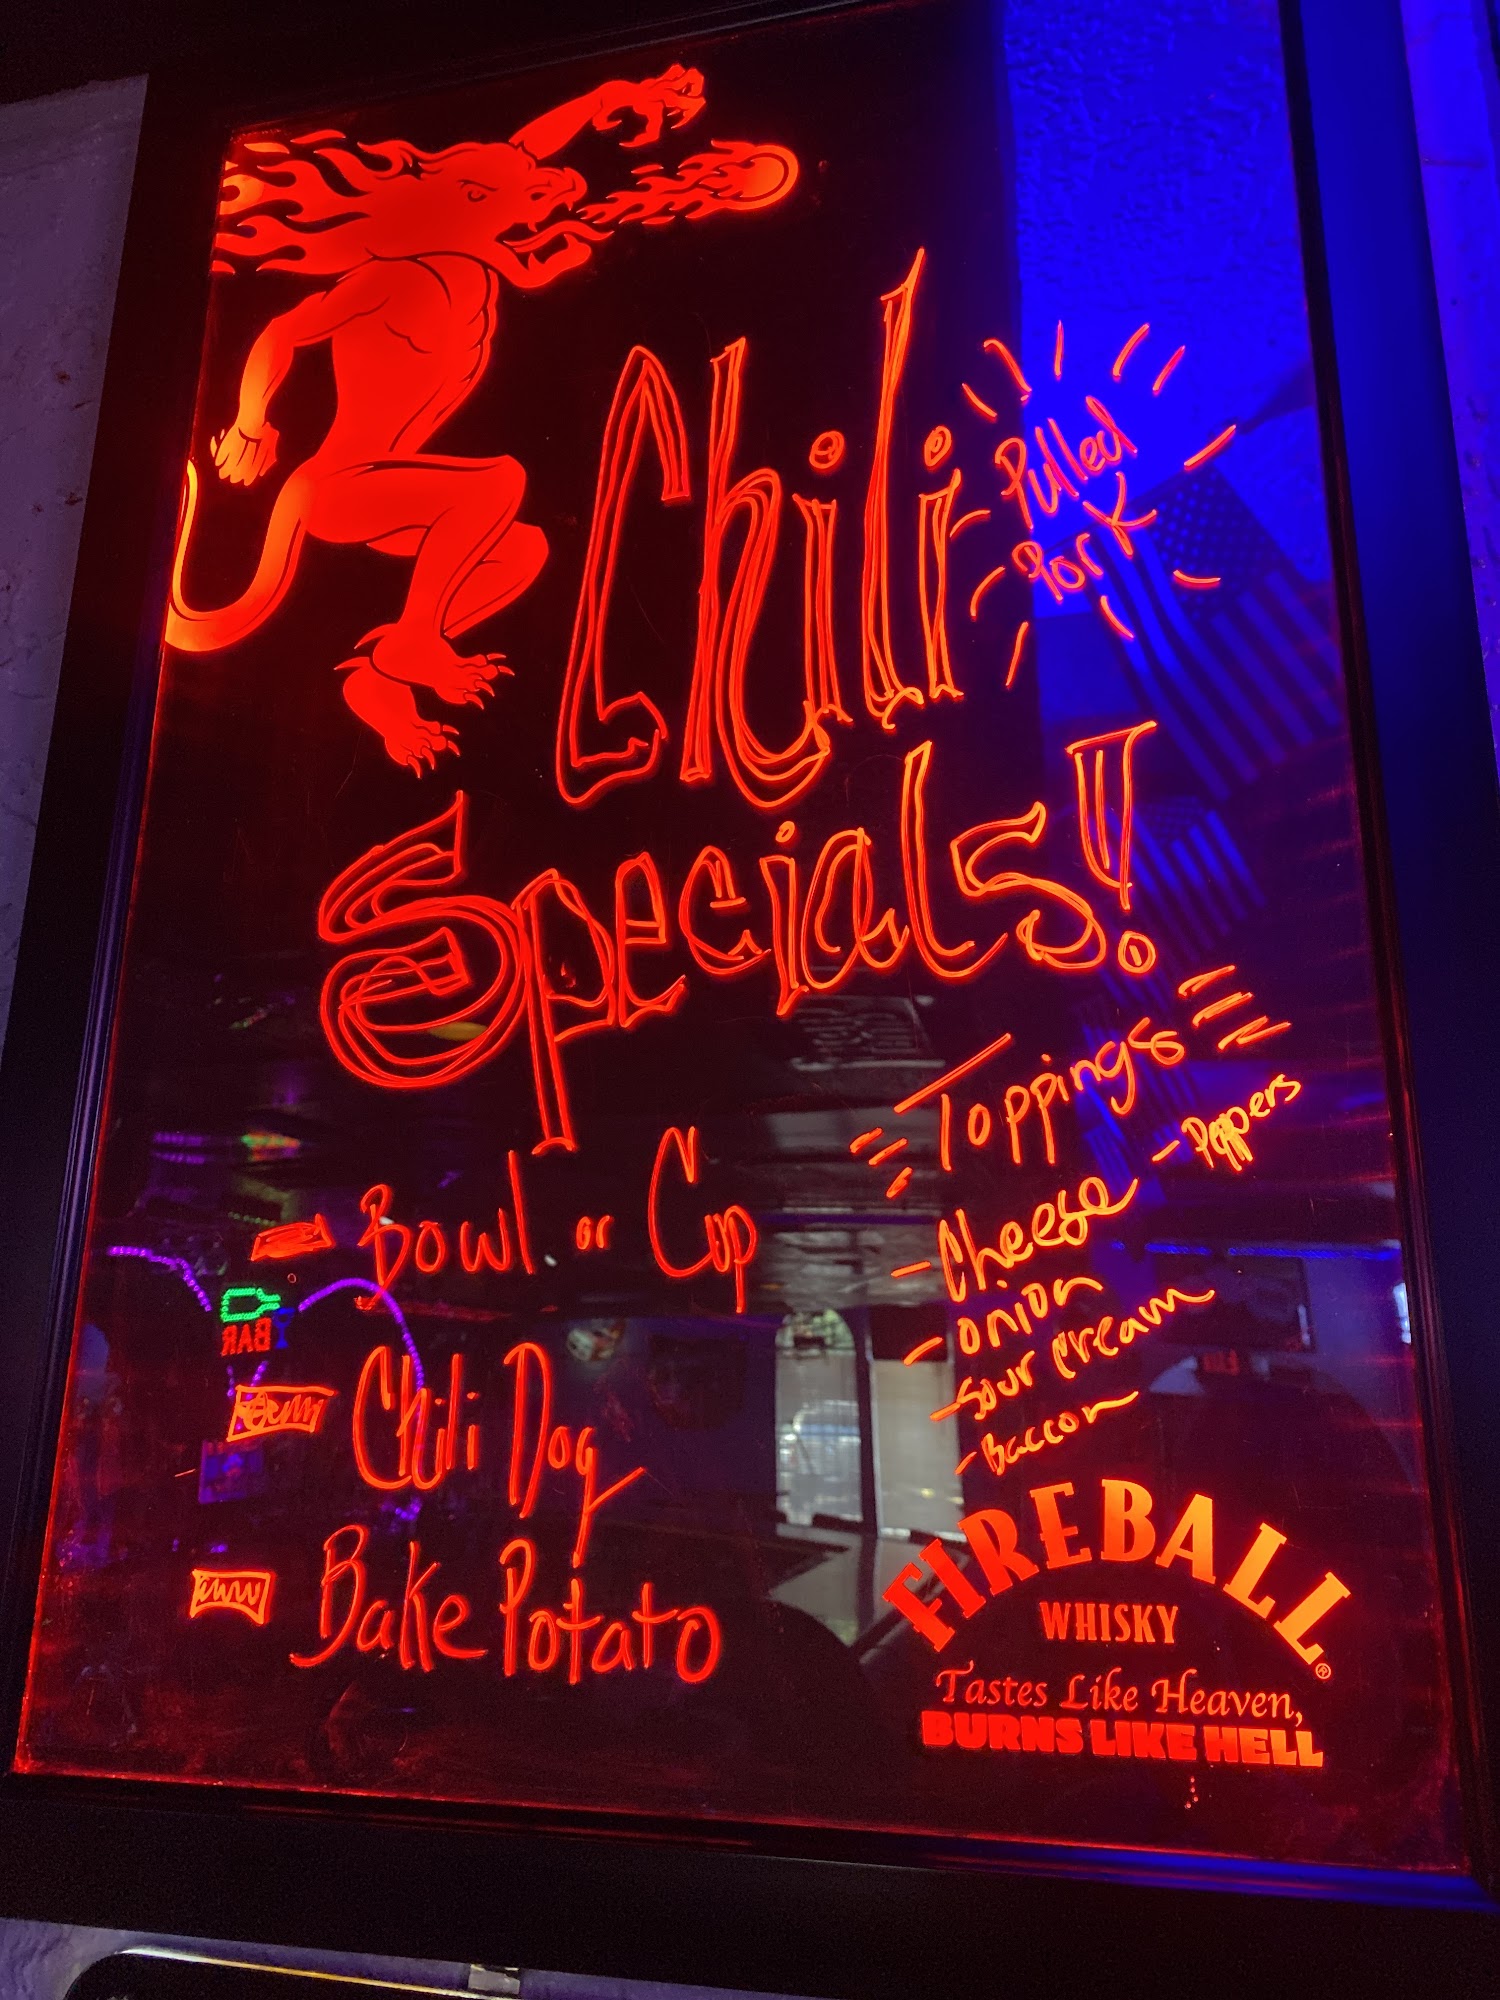 Chili
Pulled
Pork
Specials!
Toppings
- Peppers
- Cheese
- onion
- Sour cream
- Baccon
Bowl or Cup
Chili Dog
Bake Potato
BAR
FIREBALL
WHISKY
Tastes Like Heaven,
BURNS LIKE HELL